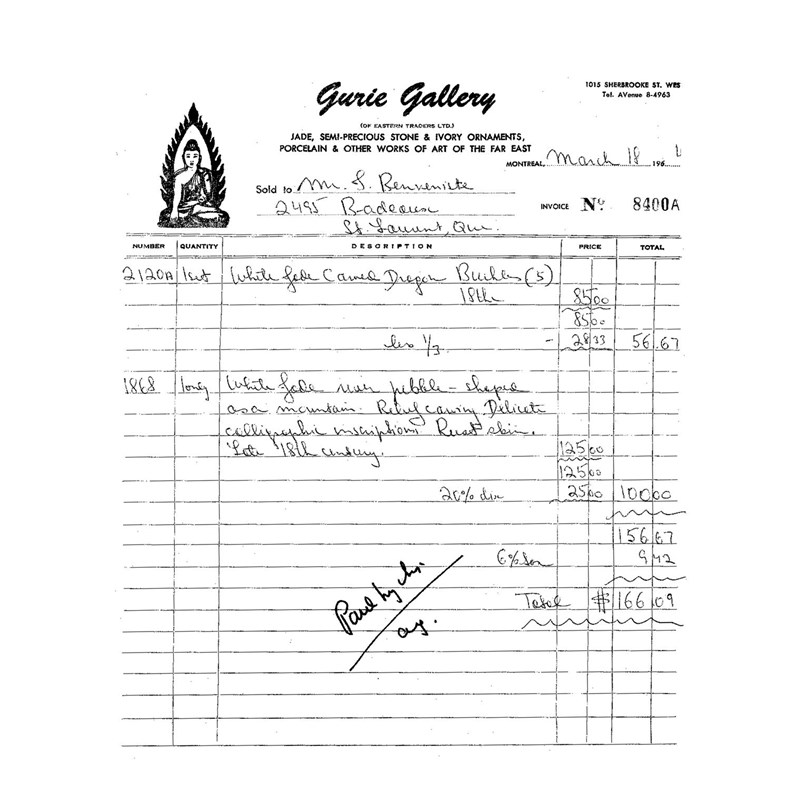 Gurie Gallery
1015 SHERBROOKE ST. WES
Tel. AVenue 8-4963
(OF EASTERN TRADERS LTD.)
JADE, SEMI-PRECIOUS STONE & IVORY ORNAMENTS,
PORCELAIN & OTHER WORKS OF ART OF THE FAR EAST
MONTREAL, March 18 196
Sold to Mr. J. Benveniste
2495 Badeaux
St. Laurent, Que.
INVOICE No 8400A
NUMBER QUANTITY DESCRIPTION PRICE TOTAL
2120A 1 set White Jade Carved Dragon Buckles (5)
18th 85 00
85 00
less 1/3 - 28 33 56.67
1868 White Jade pebble - shaped
as a mountain. Relief carving Delicate
calligraphic inscriptions. Russet skin.
Late 18th century. 125 00
125 00
20% dis 25 00 100 00
156 67
6% 9 42
Total $ 166.09
Paid by